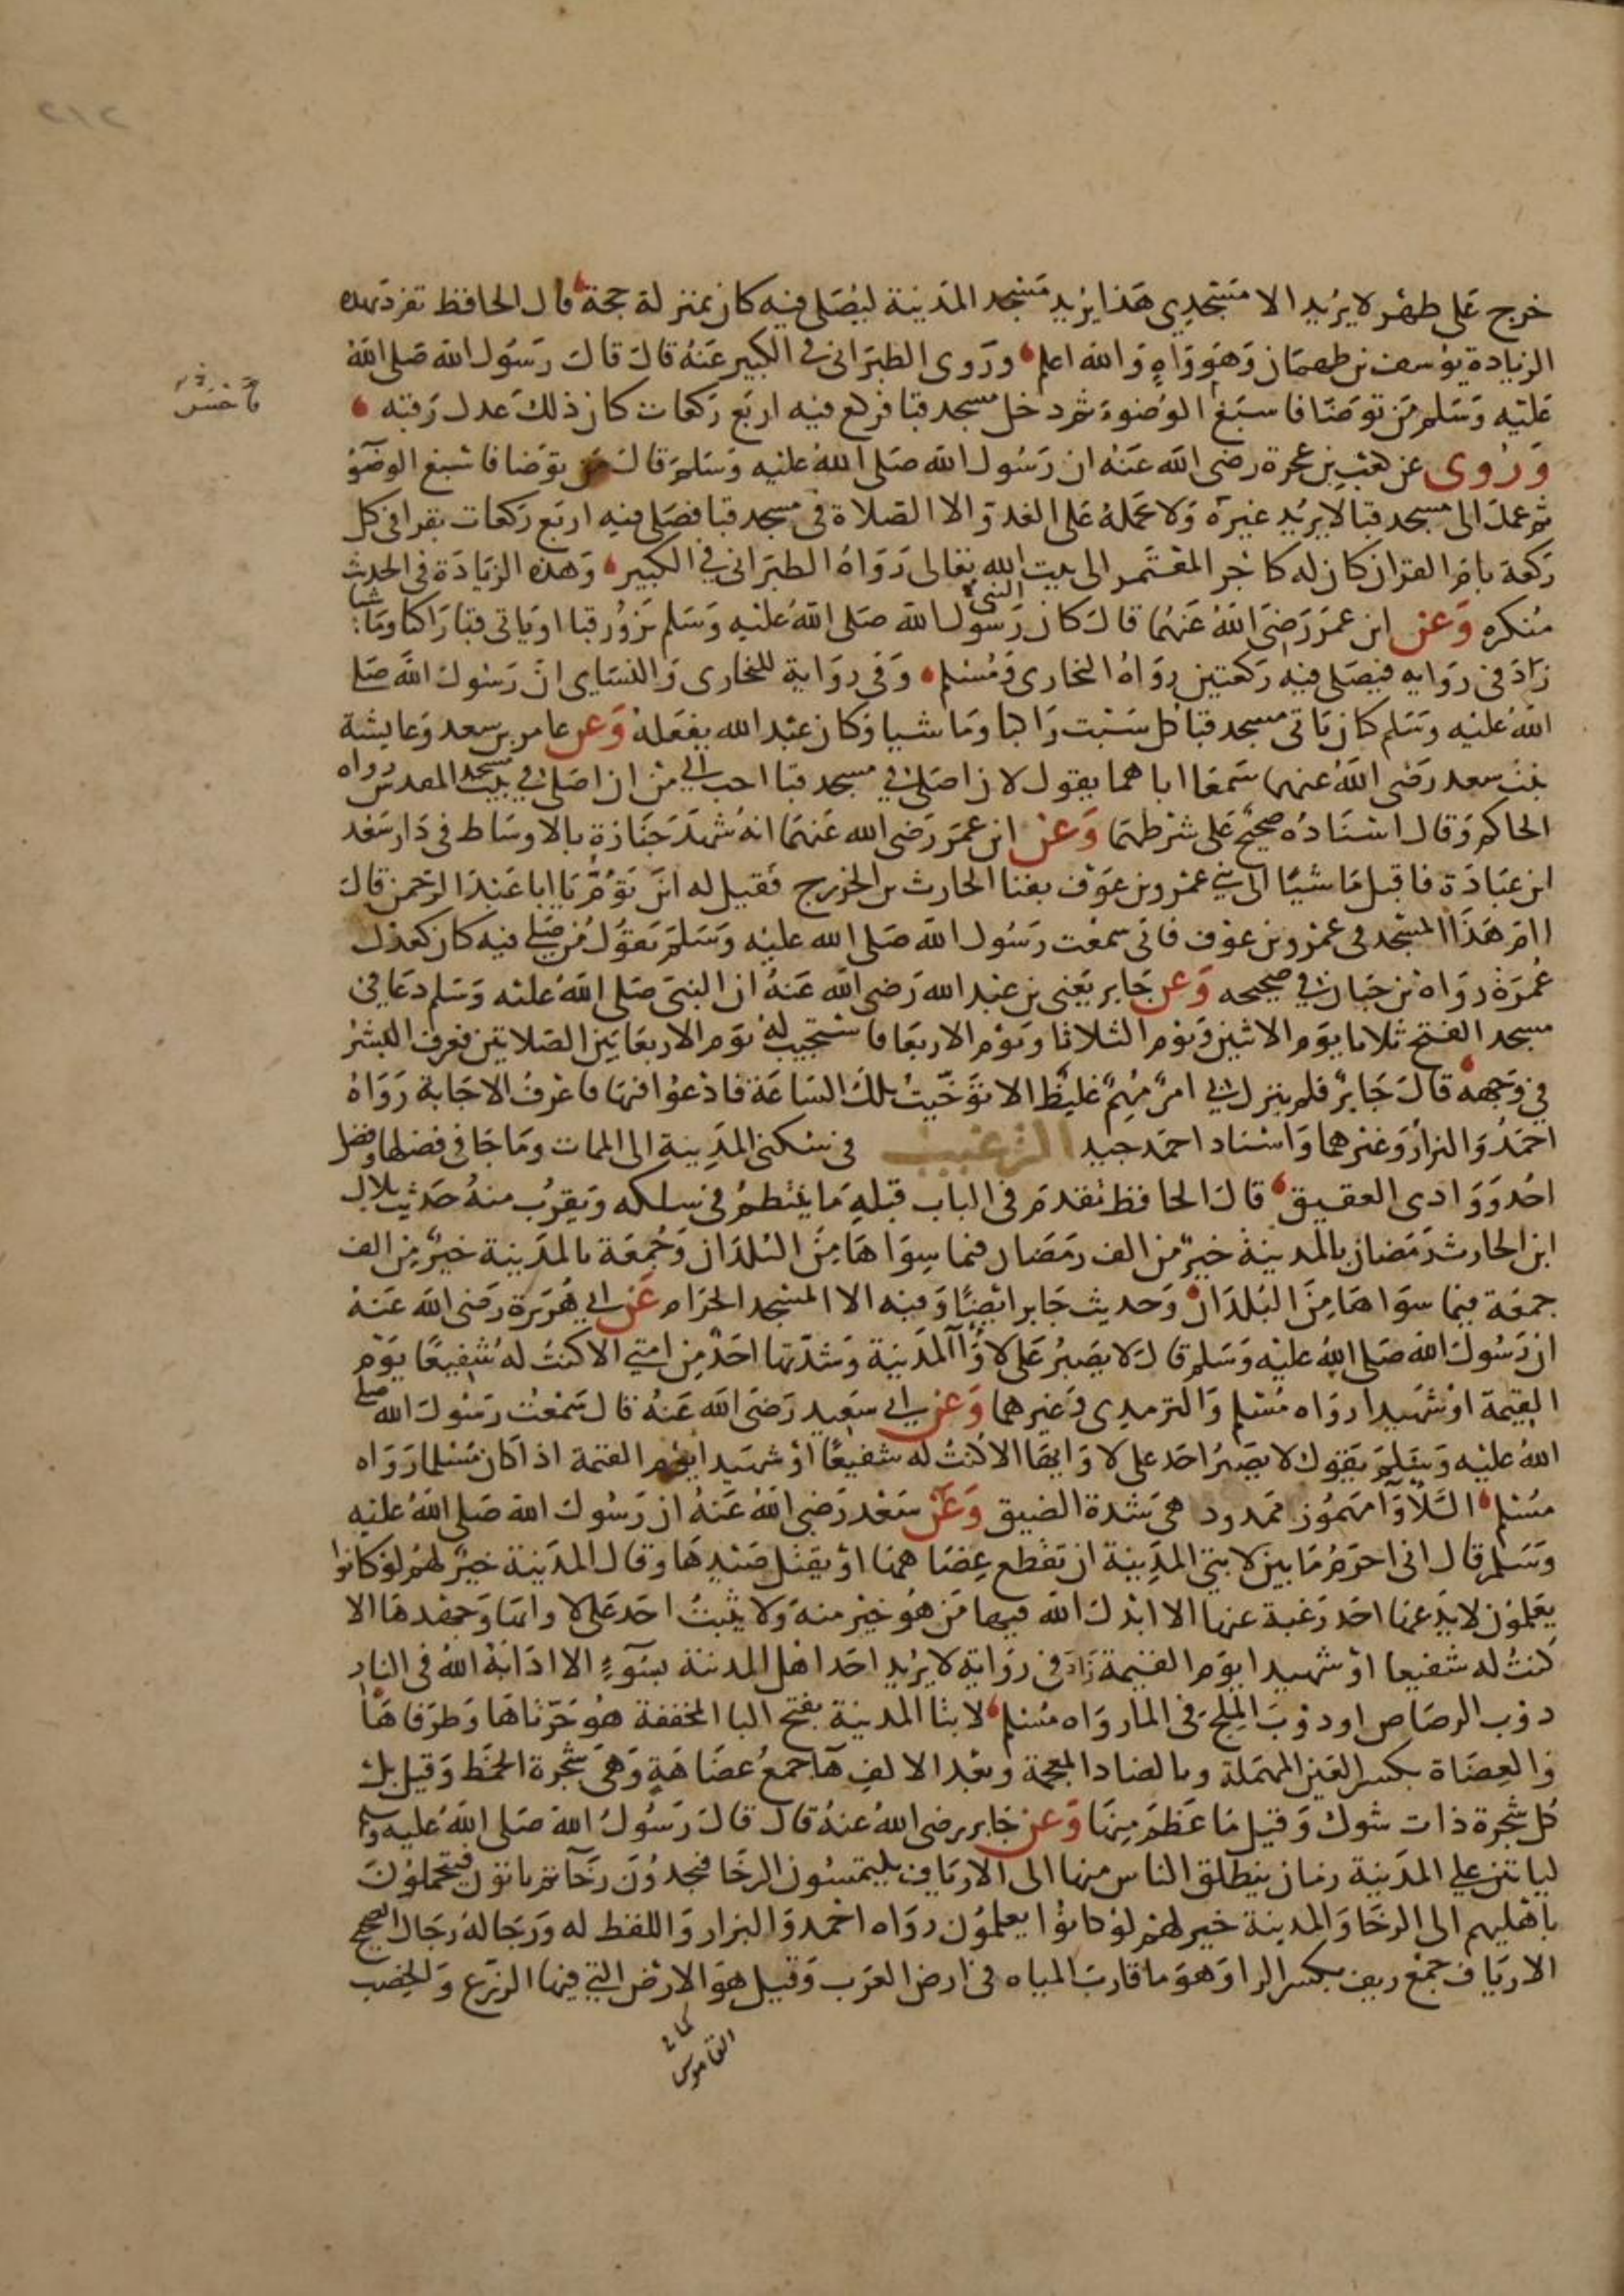 ٢١٢
خرج على طهر لا يريد الا مسجدي هذا يريد مسجد المدينة ليصلي فيه كان بمنزلة حجة قال الحافظ تفرد بهذه
الزيادة يوسف بن طهمان وهو واهٍ والله اعلم وروى الطبراني في الكبير عنه قال قال رسول الله صلى الله
عليه وسلم من توضا فاسبغ الوضوء ثم دخل مسجد قبا فركع فيه اربع ركعات كان ذلك عدل رقبه
وروى عن كعب بن عجرة رضى الله عنه ان رسول الله صلى الله عليه وسلم قال من توضا فاسبغ الوضؤَ
ثم عمد الى مسجد قبا لا يريد غيره ولا حمله على الغدو الا الصلاة في مسجد قبا فصلى فيه اربع ركعات يقرا في كل
ركعة بام القران كان له كاجر المعتمر الى بيت الله تعالى رواه الطبراني في الكبير وهذه الزيادة في الحديث
منكره وعن ابن عمر رضى الله عنهما قال كان رسول الله صلى الله عليه وسلم يزور قبا او ياتى قبا راكبا وماشيا
النبي
زاد في روايه فيصلى فيه ركعتين رواه البخارى ومسلم وفي رواية للبخارى والنساي ان رسول الله صلى
الله عليه وسلم كان ياتى مسجد قبا كل سبت راكبا وماشيا وكان عبد الله يفعله وعن عامر بن سعد وعايشة
بنت سعد رضى الله عنهما سمعا اباهما يقول لان اصلى في مسجد قبا احب الي من ان اصلى في مسجد بيت المقدس رواه
الحاكم وقال اسناده صحيح على شرطهما وعن ابن عمر رضى الله عنهما انه شهد جنازة بالاوساط في دار سعد
ابن عبادة فاقبل ماشيًا الى بني عمرو بن عوف بفنا الحارث بن الخزرج فقيل له اين تؤم يا ابا عبد الرحمن قال
اؤم هذا المسجد في عمرو بن عوف فانى سمعت رسول الله صلى الله عليه وسلم يقول من صلى فيه كان كعدل
عمرة رواه بن حبان في صحيحه وعن جابر يعنى بن عبد الله رضى الله عنه ان النبي صلى الله عليه وسلم دعا في
مسجد الفتح ثلاثا يوم الاثنين ويوم الثلاثا ويوم الاربعا فاستجيب له يوم الاربعا بين الصلاتين فعرف البشر
في وجهه قال جابر فلم ينزل بي امر مهم غليظ الا توخيت تلك الساعة فادعوا فيها فاعرف الاجابة رواه
احمد والبزار وغيرهما واسناد احمد جيد الترغيب في سكنى المدينة الى الممات وما جا في فضلها وفضل
احد ووادى العقيق قال الحافظ تقدم في الباب قبله ما ينتظم في سلكه ويقرب منه حديث بلال
ابن الحارث رمضان بالمدينة خير من الف رمضان فيما سواها من البلدان وجمعة بالمدينة خير من الف
جمعة فيما سواها من البلدان وحديث جابر ايضًا وفيه الا المسجد الحرام عن ابي هريرة رضى الله عنه
ان رسول الله صلى الله عليه وسلم قال لا يصبر على لاوآ المدينة وشدتها احد من امتي الا كنت له شفيعًا يوم
القيمة او شهيدا رواه مسلم والترمدى وغيرهما وعن ابي سعيد رضى الله عنه قال سمعت رسول الله صلى
الله عليه وسلم يقول لا يصبر احد على لاوايها الا كنت له شفيعًا او شهيدا يوم القيمة اذا كان مسلما رواه
مسلم اللأوآ مهموز ممدود هي شدة الضيق وعن سعد رضى الله عنه ان رسول الله صلى الله عليه
وسلم قال انى احرم ما بين لابتي المدينة ان تقطع عضاهها او يقتل صيدها وقال المدينة خير لهم لو كانوا
يعلمون لا يدعها احد رغبة عنها الا ابدل الله فيها من هو خير منه ولا يثبت احد على لاوائها وجهدها الا
كنت له شفيعا او شهيدا يوم القيمة زاد في رواية لا يريد احد اهل المدينة بسوء الا اذابه الله في النار
ذوب الرصاص او ذوب الملح في الما رواه مسلم لابتا المدينة بفتح البا المخففة هو حرتاها وطرفاها
والعضاة بكسر العين المهملة وبالضاد المعجمة وبعد الالف هآ جمع عضاهة وهي شجرة الخمط وقيل بل
كل شجرة ذات شوك وقيل ما عظم منها وعن جابر رضى الله عنه قال قال رسول الله صلى الله عليه وسلم
لياتين على المدينة زمان ينطلق الناس منها الى الارياف يلتمسون الرخا فيجدون رخآ ثم ياتون فيتحملون
باهليهم الى الرخا والمدينة خير لهم لو كانوا يعلمون رواه احمد والبزار واللفظ له ورجاله رجال الصحيح
الارياف جمع ريف بكسر الرا وهو ما قارب المياه في ارض العرب وقيل هو الارض التي فيها الزرع والخصب
كما في
القاموس